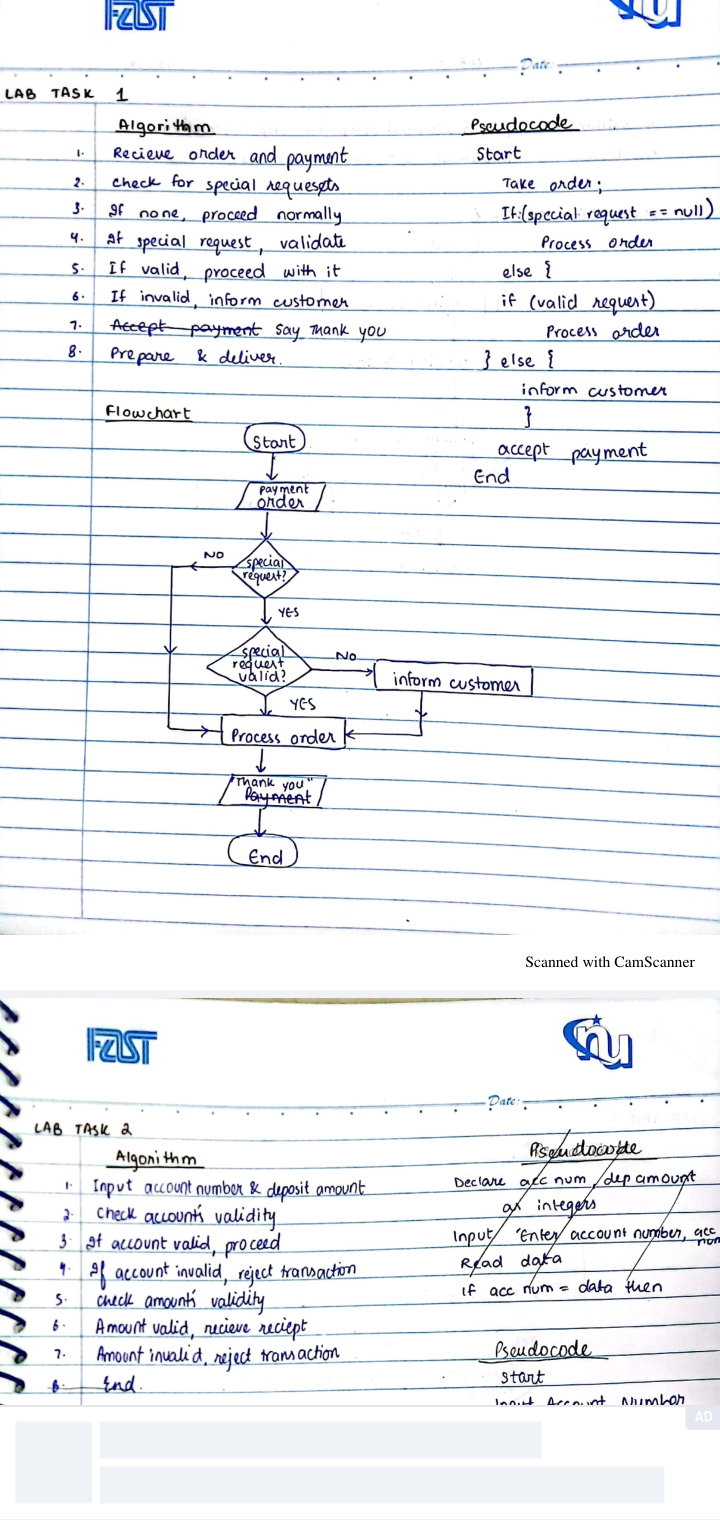 FAST
nu
Date:
LAB TASK 1
Algorithm
1. Recieve order and payment
2. check for special requesets
3. If none, proceed normally
4. If special request, validate
5. If valid, proceed with it
6. If invalid, inform customer
7. Accept payment Say Thank you
8. Prepare & deliver.
Pseudocode
Start
Take order;
If:(special request == null)
Process order
else {
if (valid request)
Process order
} else {
inform customer
}
accept payment
End
Flowchart
Start
payment
order
special
request?
NO
YES
special
request
valid?
NO
inform customer
YES
Process order
"Thank you"
Payment
End
Scanned with CamScanner
FAST
nu
Date:
LAB TASK 2
Algorithm
1. Input account number & deposit amount
2. Check account's validity
3. If account valid, proceed
4. If account invalid, reject transaction
5. check amount's validity
6. Amount valid, recieve reciept
7. Amount invalid, reject transaction
8. End.
Pseudocode
Declare acc num, dep amount
as integers
Input "Enter account number, acc
num
Read data
if acc num = data then
Pseudocode
Start
Input Account Number
AD